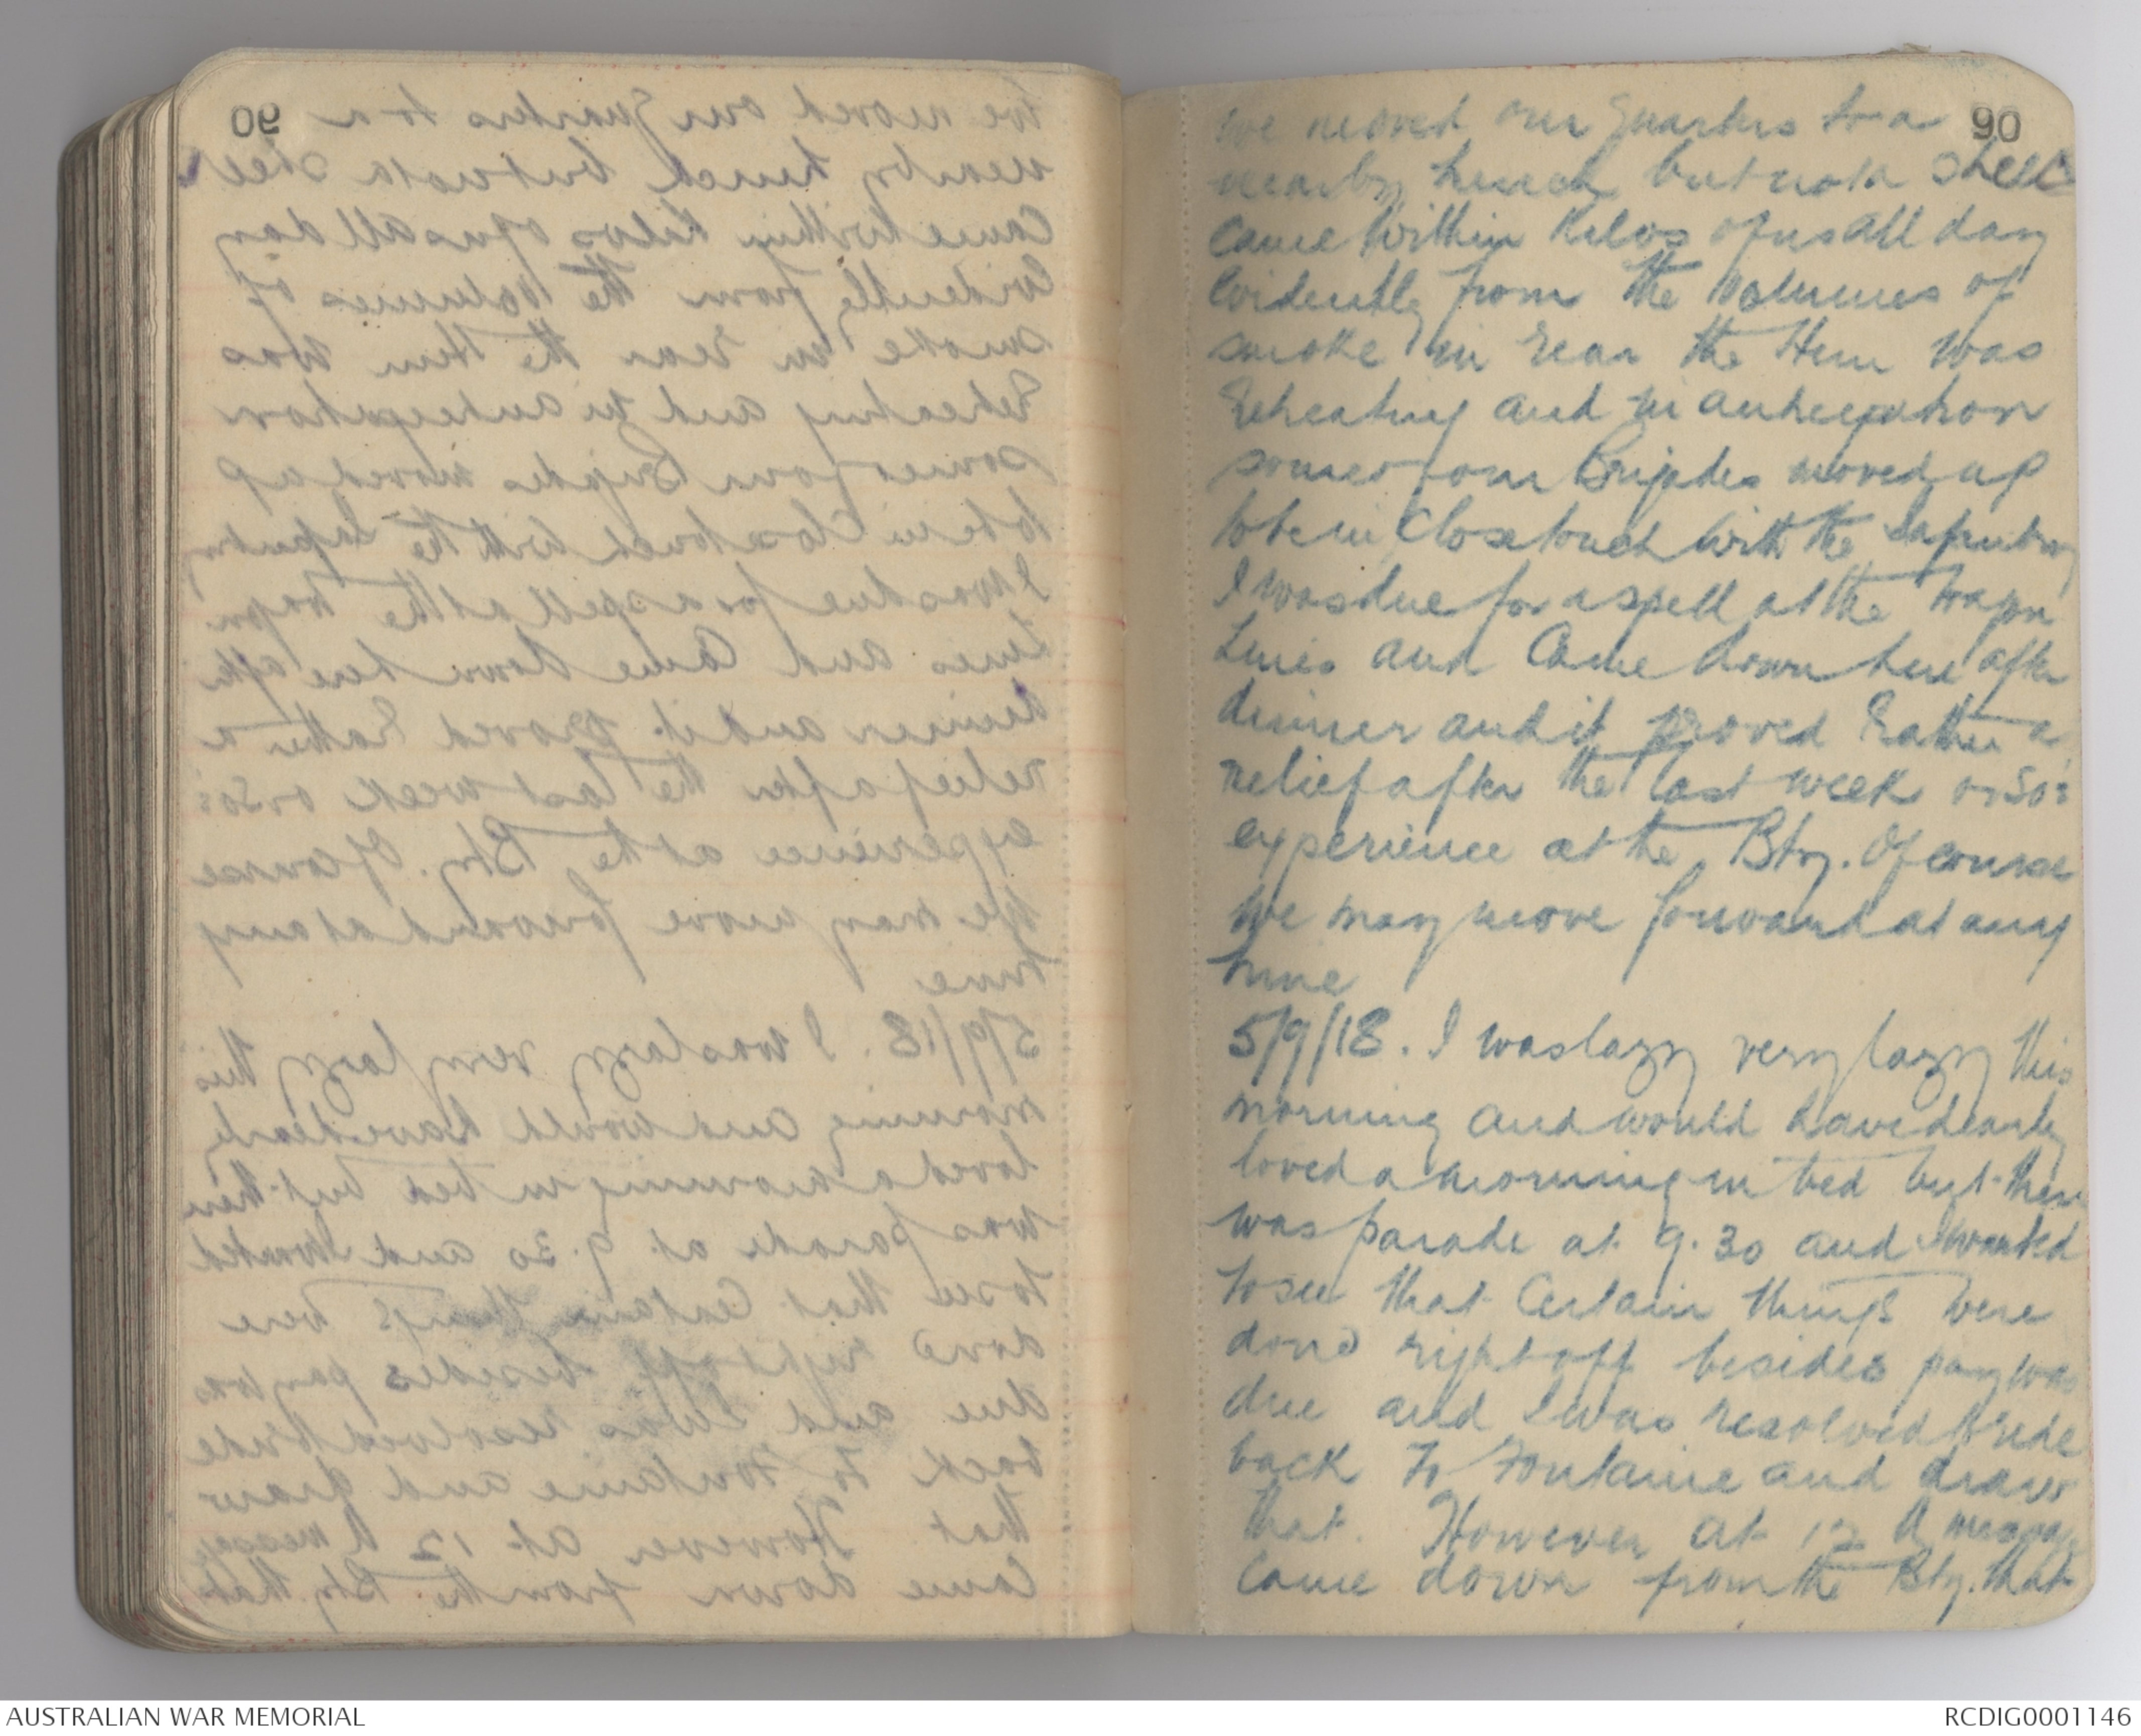 90
We moved our quarters to a
nearby trench but not a shell
came within kilos of us all day
Evidently from the volumes of
smoke in rear the Hun was
retreating and in anticipation
some of our Brigades moved up
to be in close touch with the Infantry
I was due for a spell at the wagon
lines and came down here after
dinner and it proved rather a
relief after the last week or so's
experience at the Bty. Of course
we may move forward at any
time
5/9/18. I was lazy very lazy this
morning and would have dearly
loved a morning in bed but there
was parade at 9.30 and I wanted
to see that certain things were
done right off besides pay was
due and I was resolved to ride
back to Fontaine and draw
that. However at 12 A message
came down from the Bty. that
AUSTRALIAN WAR MEMORIAL
RCDIG0001146